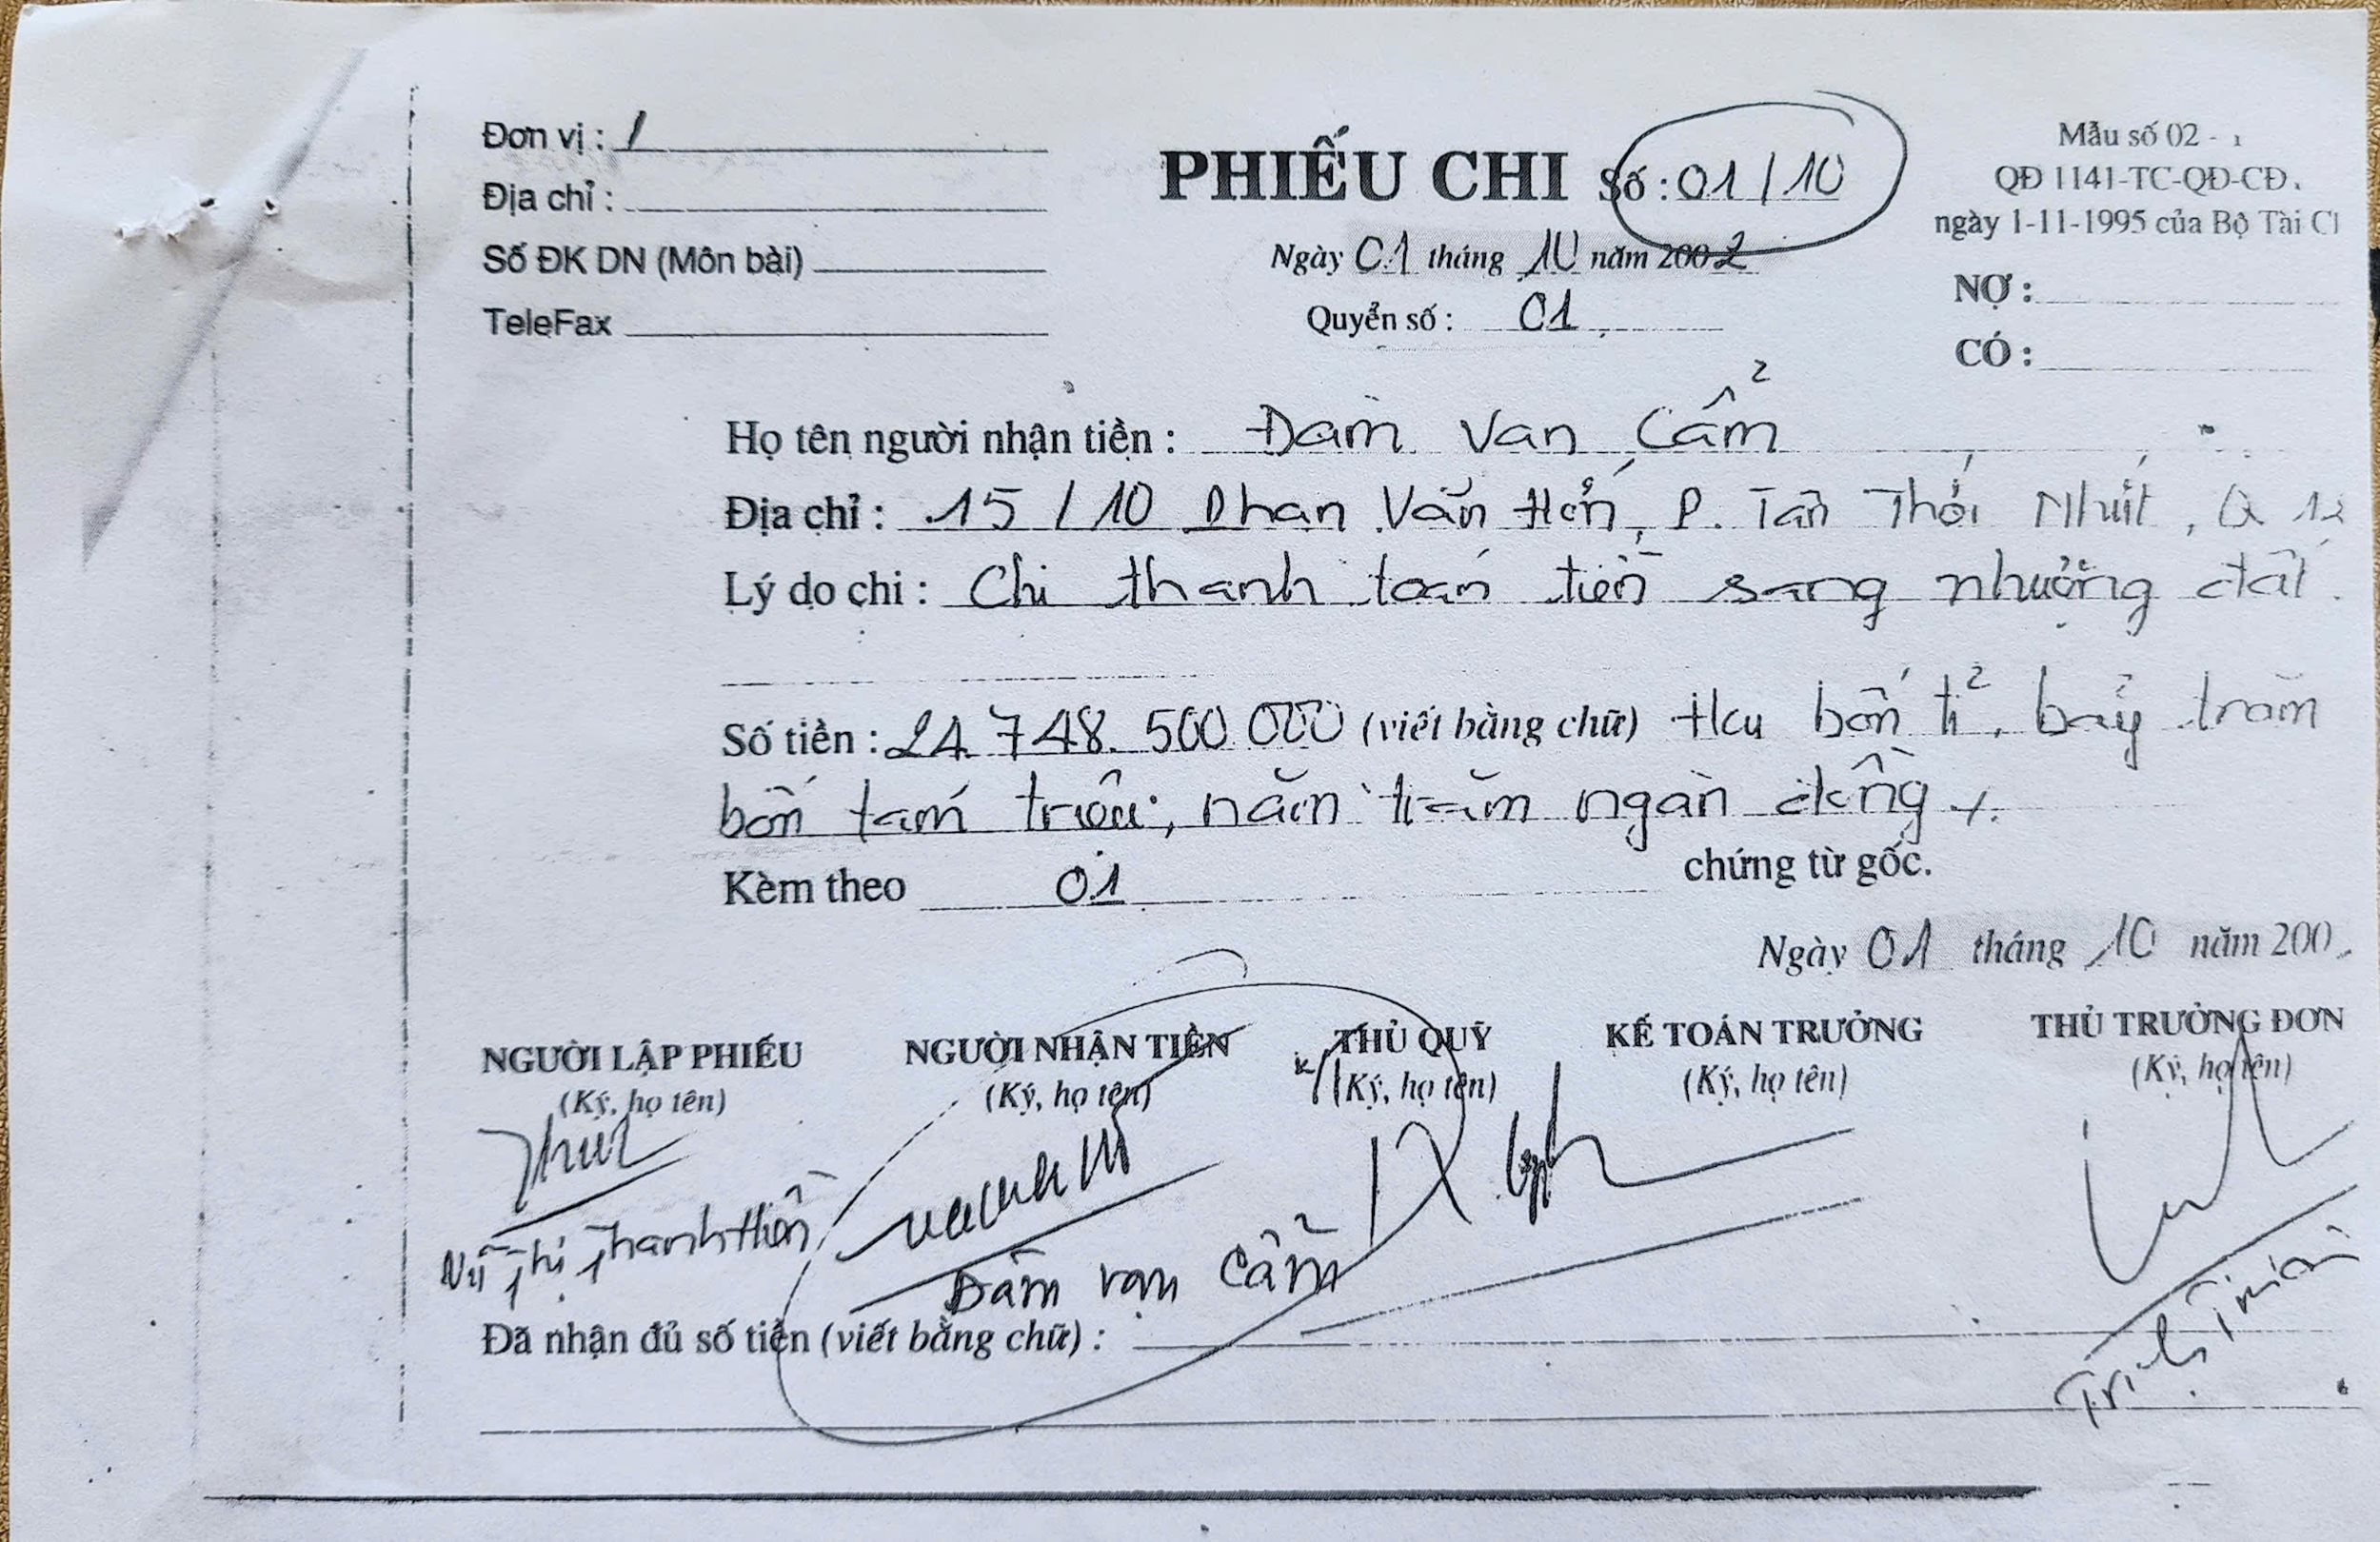 Đơn vị :
Địa chỉ :
Số ĐK DN (Môn bài)
TeleFax
PHIẾU CHI Số : 01 / 10
Ngày 01 tháng 10 năm 2002
Quyển số : 01
Mẫu số 02 -
QĐ 1141-TC-QĐ-CĐ
ngày 1-11-1995 của Bộ Tài C
NỢ :
CÓ :
Họ tên người nhận tiền : Đàm Văn Cẩm
Địa chỉ : 15 / 10 Phan Văn Hớn, P. Tân Thới Nhất, Q 12
Lý do chi : Chi thanh toán tiền sang nhượng đất.
Số tiền : 24. 748. 500 000 (viết bằng chữ) Hai bốn tỉ, bảy trăm
bốn tám triệu, năm trăm ngàn đồng
Kèm theo 01 chứng từ gốc.
Ngày 01 tháng 10 năm 200
NGƯỜI LẬP PHIẾU NGƯỜI NHẬN TIỀN THỦ QUỸ KẾ TOÁN TRƯỞNG THỦ TRƯỞNG ĐƠN
(Ký, họ tên) (Ký, họ tên) (Ký, họ tên) (Ký, họ tên) (Ký, họ tên)
Thị Thanh Hiền
Đàm Văn Cẩm
Đã nhận đủ số tiền (viết bằng chữ) :